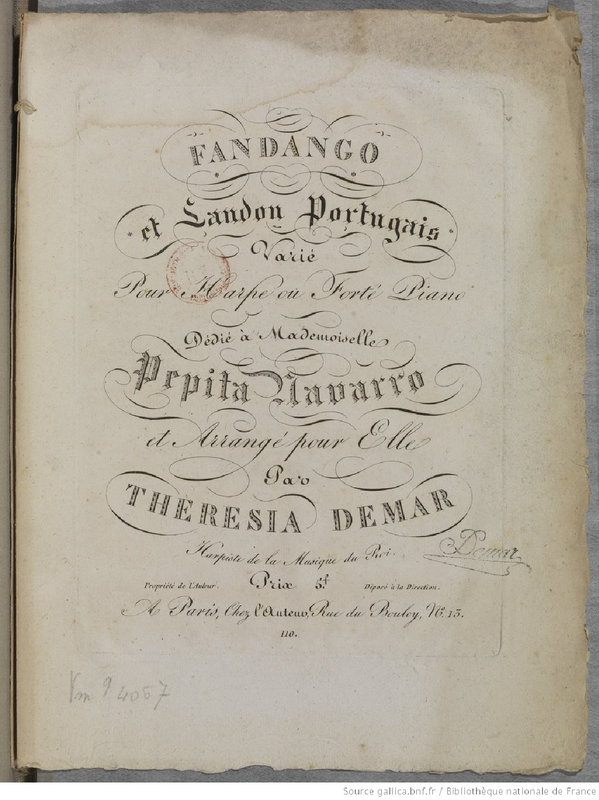 FANDANGO
et Landon Portugais
Varié
Pour Harpe ou Forté Piano
Dédié à Mademoiselle
Pepita Navarro
et Arrangé pour Elle
Par
THERESIA DEMAR
Harpiste de la Musique du Roi.
Demar
Propriété de l'Auteur. Prix 5.f Déposé à la Direction.
A Paris, Chez l'Auteur, Rue du Bouloy, No. 13.
110.
Vm 9 4057
Source gallica.bnf.fr / Bibliothèque nationale de France